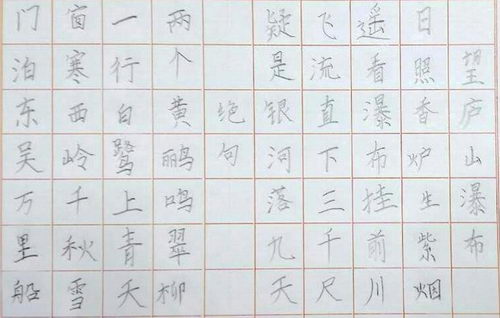 望庐山瀑布
日照香炉生紫烟
遥看瀑布挂前川
飞流直下三千尺
疑是银河落九天
绝句
两个黄鹂鸣翠柳
一行白鹭上青天
窗寒西岭千秋雪
门泊东吴万里船